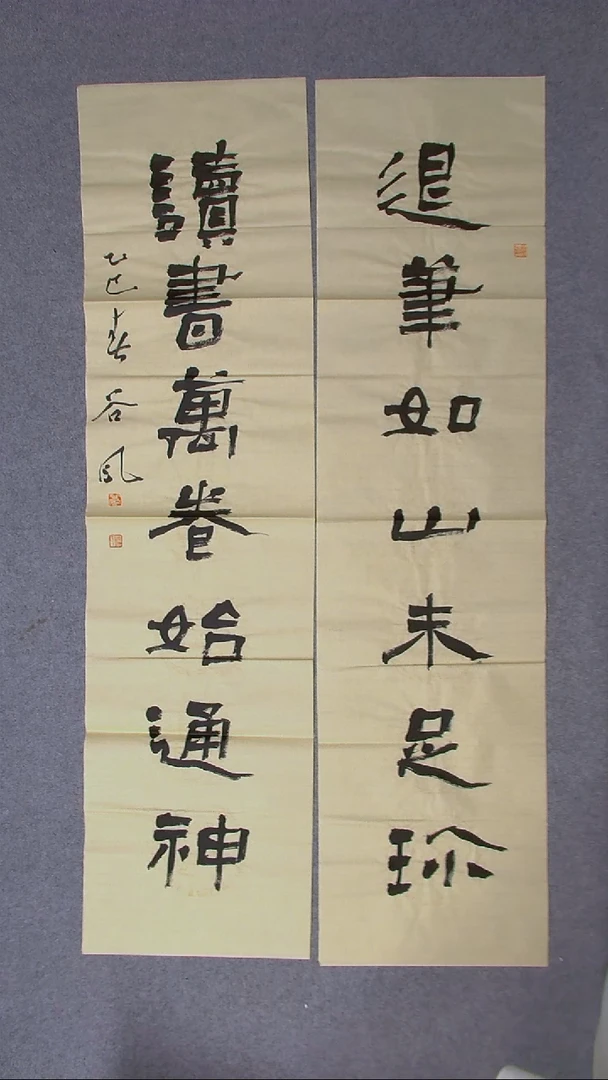 退筆如山未足珎
讀書萬卷始通神
乙巳春谷风